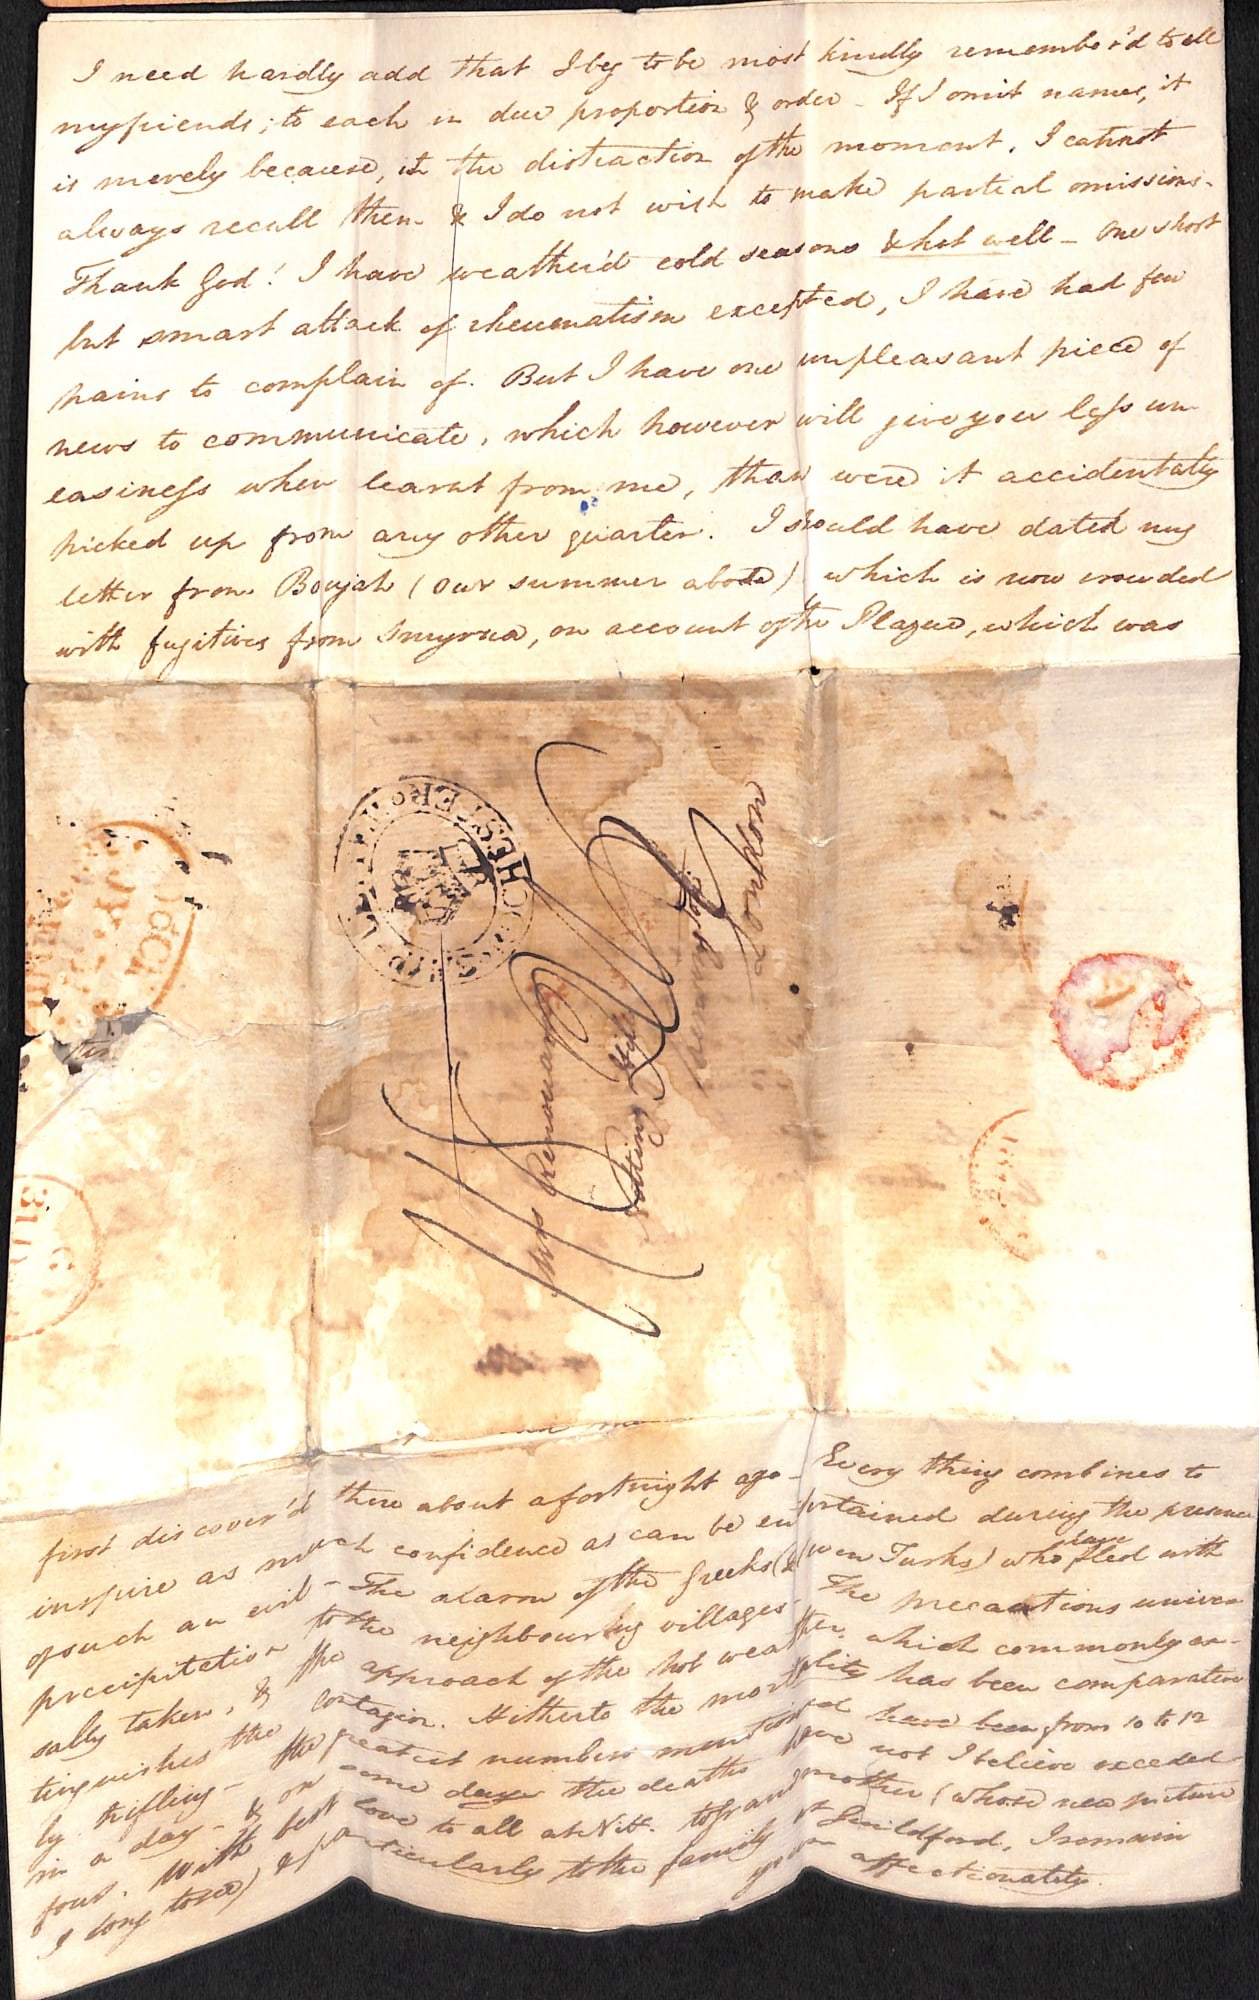 I need hardly add that I beg to be most kindly remember'd to all
my friends; to each in due proportion & order - If I omit names, it
is merely because, in the distraction of the moment, I cannot
always recall them & I do not wish to make partial omissions.
Thank God! I have weather'd cold seasons & hot well - One short
but smart attack of rheumatism excepted, I have had few
pains to complain of. But I have one unpleasant piece of
news to communicate, which however will give you less un
easiness when learnt from me, than were it accidentally
picked up from any other quarter. I should have dated my
letter from Boujah (our summer abode) which is now crouded
with fugitives from Smyrna, on account of the Plague, which was
SHIP LETTER
Mrs Renouard
Notting Hill
Kensington
London
first discover'd there about a fortnight ago - Every thing combines to
inspire as much confidence as can be entertained during the presence
of such an evil - The alarm of the Greeks (& even Turks) who have fled with
precipitation to the neighbouring villages. The precautions univer
sally taken, & the approach of the hot weather, which commonly ex-
tinguishes the contagion. Hitherto the mortality has been comparative
ly trifling - The greatest numbers mentioned have been from 10 to 12
in a day - & on some days the deaths have not I believe exceeded
four. With best love to all at N.H. to grandmother (whose new picture
I long to see) & particularly to the family at Guildford, I remain
yrs affectionately.